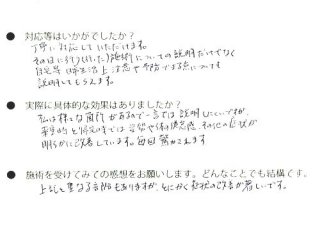 ● 対応等はいかがでしたか？
丁寧に対応していただけます。
その日に行う(行った)施術についての説明だけでなく
自宅等 日常生活上 注意や予防できる点についても
説明してもらえます。
● 実際に具体的な効果はありましたか？
私は様々な箇所があるので一言では説明しにくいですが、
来た時と帰る時では 姿勢や 症状が
明らかに改善しています。毎回 驚かされます
● 施術を受けてみての感想をお願いします。どんなことでも結構です。
上記と重なる部分もありますが、とにかく症状の改善が著しいです。